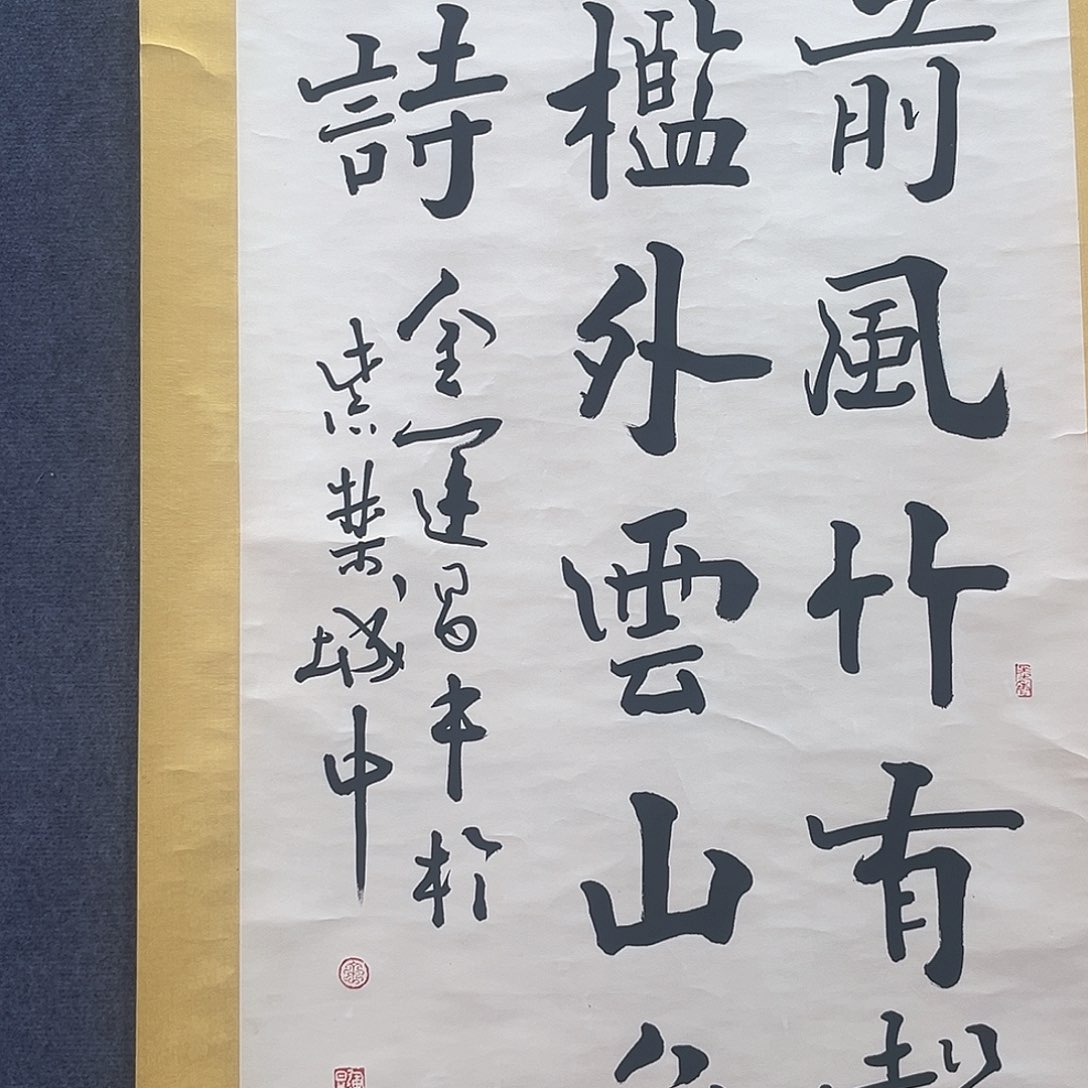 前風竹有
檻外雲山
詩
金運昌书於
紫禁城中